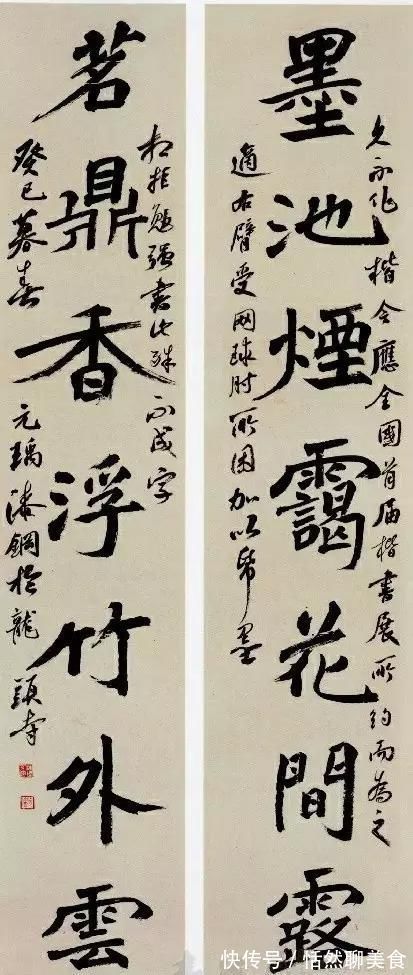 墨池煙靄花間露
久不作楷今應全國首届楷書展所約而為之
適右臂受网球肘所困加以帋墨
茗鼎香浮竹外雲
相拒勉强書此殊不成字
癸巳暮春元瑀漆鋼於龍
快传号/恬然聊美食